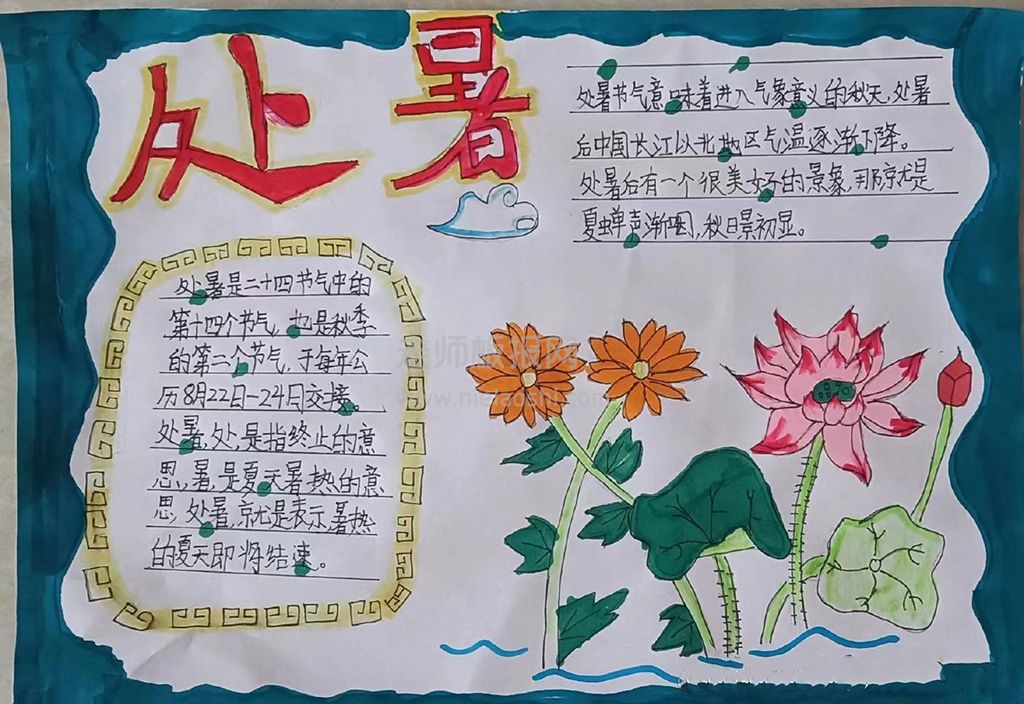 处暑
处暑节气意味着进入气象意义的秋天,处暑
后中国长江以北地区气温逐渐下降。
处暑后有一个很美好的景象,那就是
夏蝉声渐困,秋日景初显。
处暑是二十四节气中的
第十四个节气,也是秋季
的第二个节气,于每年公
历8月22日—24日交接。
处暑,处,是指终止的意
思,暑,是夏天暑热的意
思,处暑,就是表示,暑热
的夏天即将结速。
老师板报网